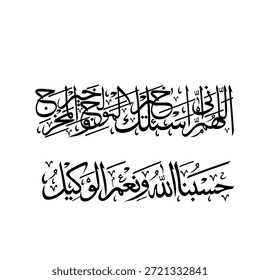 اللهم إني أسئلك خير المولج وخير المخرج
حَسْبُنَا اللهُ وَنِعْمَ الْوَكِيْلُ
shutterstock.com · 2721332841